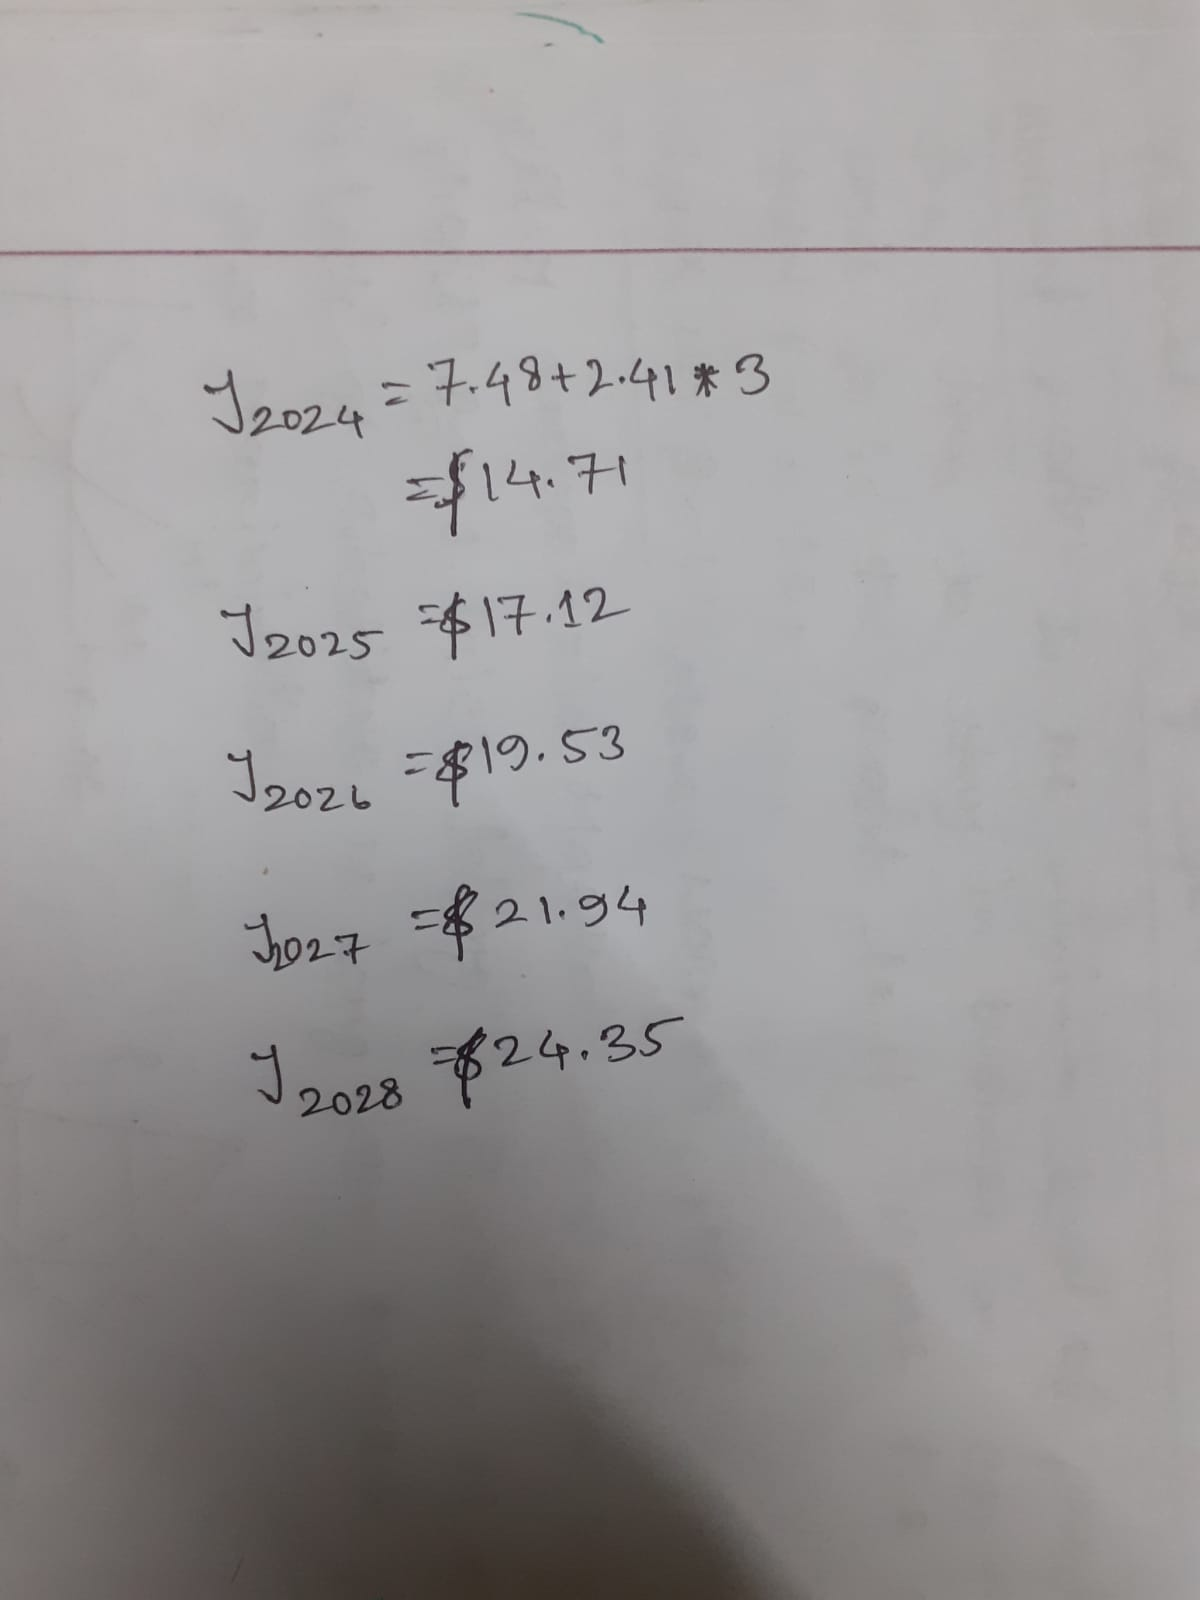 Y2024 = 7.48+2.41 * 3
=$14.71
Y2025 =$17.12
Y2026 =$19.53
Y2027 =$21.94
Y2028 =$24.35